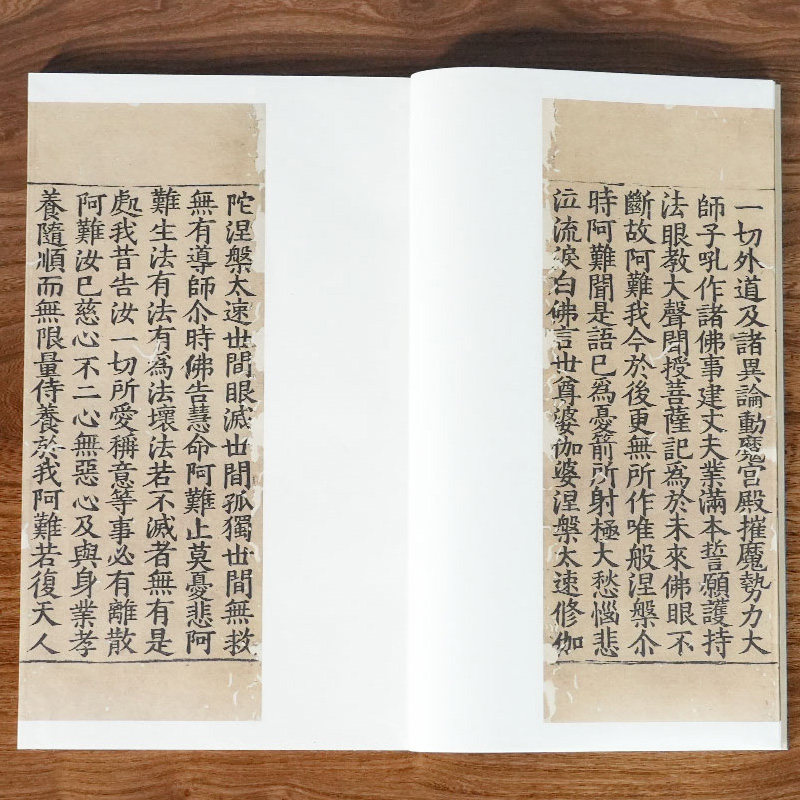 一切外道及諸異論動魔宮殿摧魔勢力大
師子吼作諸佛事建丈夫業滿本誓願護持
法眼教大聲聞授菩薩記為於未來佛眼不
斷故阿難我今於後更無所作唯般涅槃尒
時阿難聞是語已為憂箭所射極大愁惱悲
泣流淚白佛言世尊婆伽婆涅槃太速修伽
陀涅槃太速世間眼滅世間孤獨世間無救
無有導師尒時佛告慧命阿難止莫憂悲阿
難生法有法有為法壞法若不滅者無有是
處我昔告汝一切所愛稱意等事必有離散
阿難汝已慈心不二心無惡心及與身業孝
養隨順而無限量侍養於我阿難若復天人